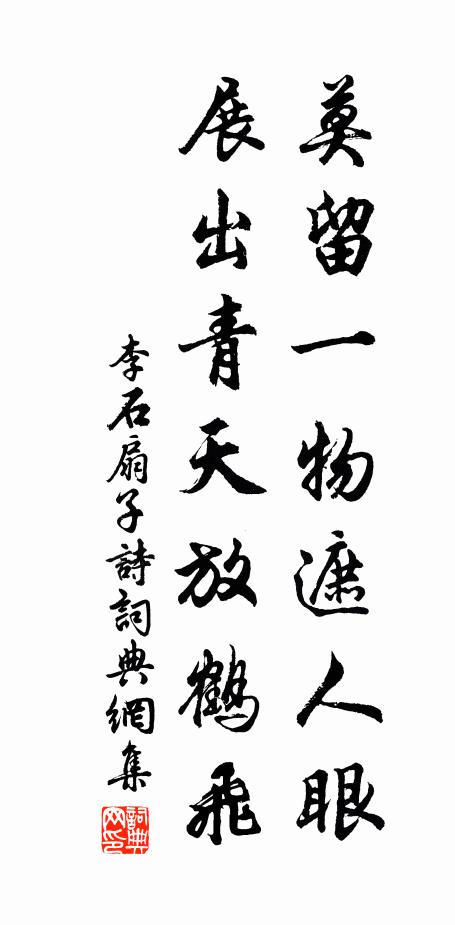 莫留一物遮人眼
展出青天放鶴飛
李石扇子詩詞典網集
詞典網印